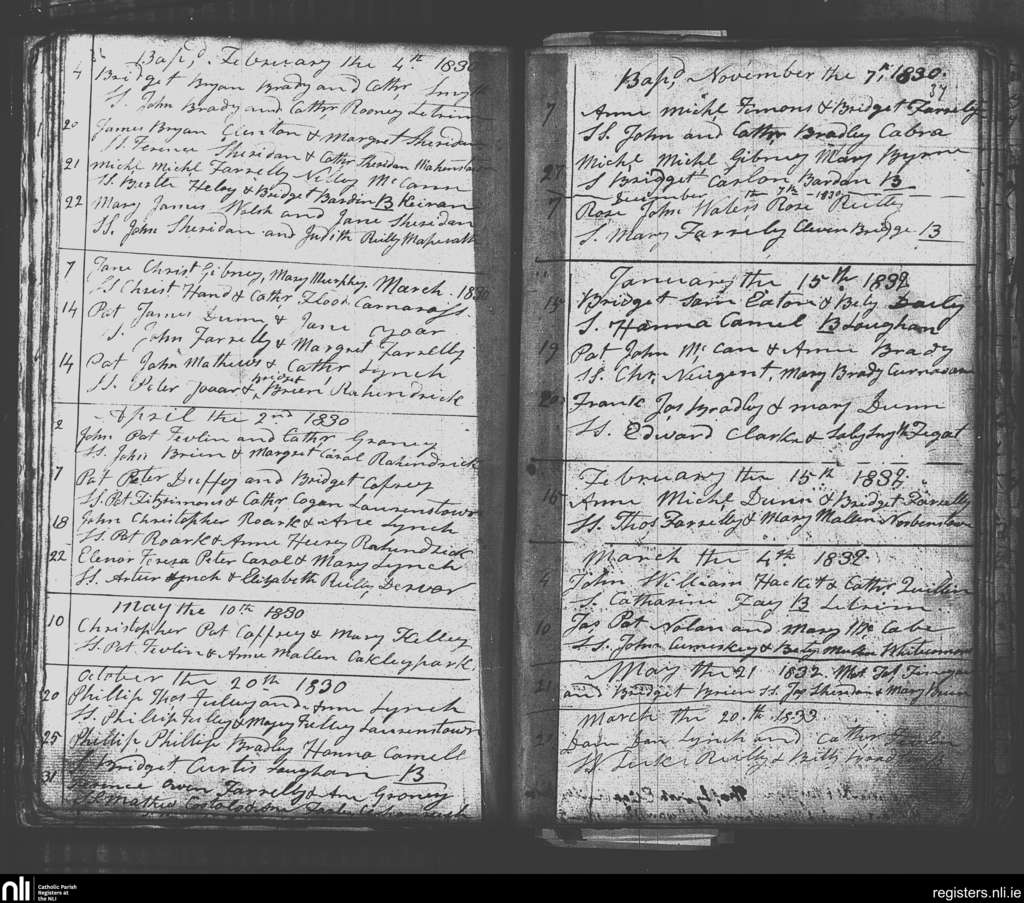 Bapd, February the 4th 1830
4 Bridget Bryan Brady and Cathr, Smyth
SS. John Brady and Cathr, Rooney Letrim
20 James Bryan & Margret Sheridan
SS. Terence Sheridan & Cathr Sheridan
21 Michl Michl Farrelly Nelley McCann
SS. Healy & Bridget Bardin B Keiran
22 Mary James Walsh and Jane Sheridan
SS. John Sheridan and Judith Reilly
March. 1830
7 Jane Christ. Gibney, Mary Murphey
SS Christ. Hand & Cathr Flood Carnaross
14 Pat James Dunn & Jane
S. John Farrelly & Margret Farrelly
14 Pat John Mathews & Cathr, Lynch
SS. Peter & Bridget Brien Rahendrick
April the 2nd 1830
2 John Pat Tevlin and Cathr Groney
SS. John Brien & Margret Carol Rahendrick
7 Pat Peter Duffey and Bridget Cafrey
SS. Pat Fitzsimons & Cathr Cogan Laurenstown
18 John Christopher Roark & Ane Lynch
SS. Pat Roark & Anne Rahendrick
22 Elenor Teresa Peter Carol & Mary Lynch
SS. Artur Lynch & Elizabeth Reilly
May the 10th 1830
10 Christopher Pat Caffrey & Mary Kelley
SS. Pat Tevlin & Anne Mallen Oakleypark
October the 20th 1830
20 Phillip Thos and Anne Lynch
SS. Phillip & Laurenstown
25 Phillip Phillip Bradley Hanna Comell
S. Bridget Curtis Loughan B
31 Terence Owen Farrelly & Ane Groney
SS. Mathew
Bapd, November the 7th, 1830.
37
7 Anne Michl, Timons & Bridget Farrelly
SS. John and Cathr, Bradley Cabra
27 Michl Michl Gibney Mary Byrne
S Bridget Carlon Bardan B
December the 7th 1830
7 Rose John Waters Rose Reilly
S. Mary Farreley Cleven Bridge B
January the 15th 1832
15 Bridget Sam Eaton & Bety Daily
S. Hanna Camel B Loughan
19 Pat John McCan & Anne Brady
SS. Chr, Neugent, Mary Brady Curnasar
20 Frank Jas Bradley & Mary Dunn
SS. Edward Clarke &
February the 15th 1832
15 Anne Michl, Dunn & Bridget Farrelly
SS. Thos Farrelly & Mary Mallen
March the 4th 1832
4 John William Hacket & Cathr Quillin
S. Catharine Fay B Letrim
10 Jas Pat Nolan and Mary McCabe
SS. John & Bety
May the 21 1832 Jas
21 and Bridget Brien SS. Jas Sheridan & Mary Brien
March the 20.th 1833
21 Lynch and Cathr
SS. Reilly &
nli
Catholic Parish
Registers at
the NLI
registers.nli.ie